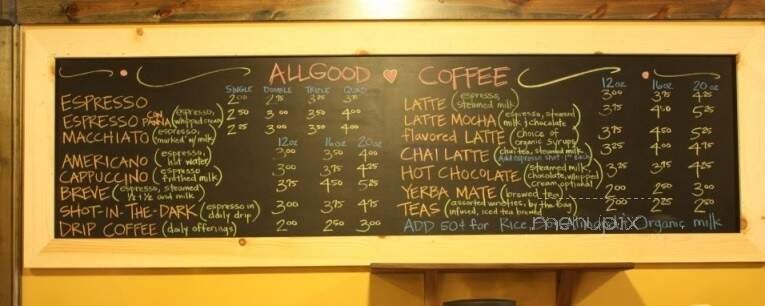 ALLGOOD ♥ COFFEE
SINGLE DOUBLE TRIPLE QUAD
ESPRESSO 2.00 2.75 3.25 3.75
ESPRESSO CON PANNA (espresso, whipped cream) 2.50 3.00 3.50 4.00
MACCHIATO (espresso, marked w/ milk) 2.25 3.00 3.50 4.00
12oz 16oz 20oz
AMERICANO (espresso, hot water) 2.00 3.00 4.00
CAPPUCCINO (espresso frothed milk) 3.00 3.75 4.25
BREVE (espresso, steamed 1/2 + 1/2 and milk) 3.75 4.50 5.25
SHOT-IN-THE-DARK (espresso in daily drip) 3.00 3.50 4.00
DRIP COFFEE (daily offerings) 2.00 2.50 3.00
12oz 16oz 20oz
LATTE (espresso, steamed milk) 3.00 3.75 4.25
LATTE MOCHA (espresso, steamed milk, chocolate) 3.75 4.50 5.25
flavored LATTE (choice of organic syrups) 3.75 4.50 5.25
CHAI LATTE (chai tea, steamed milk Add espresso shot each) 3.50 4.00
HOT CHOCOLATE (steamed milk, chocolate, whipped cream, optional) 3.25 3.75 4.25
YERBA MATE (brewed tea) 2.00 2.50 3.00
TEAS (assorted varieties, by the bag infused, iced tea brewed) 2.00 2.25 2.50
ADD 50¢ for Rice, Organic milk
menupix